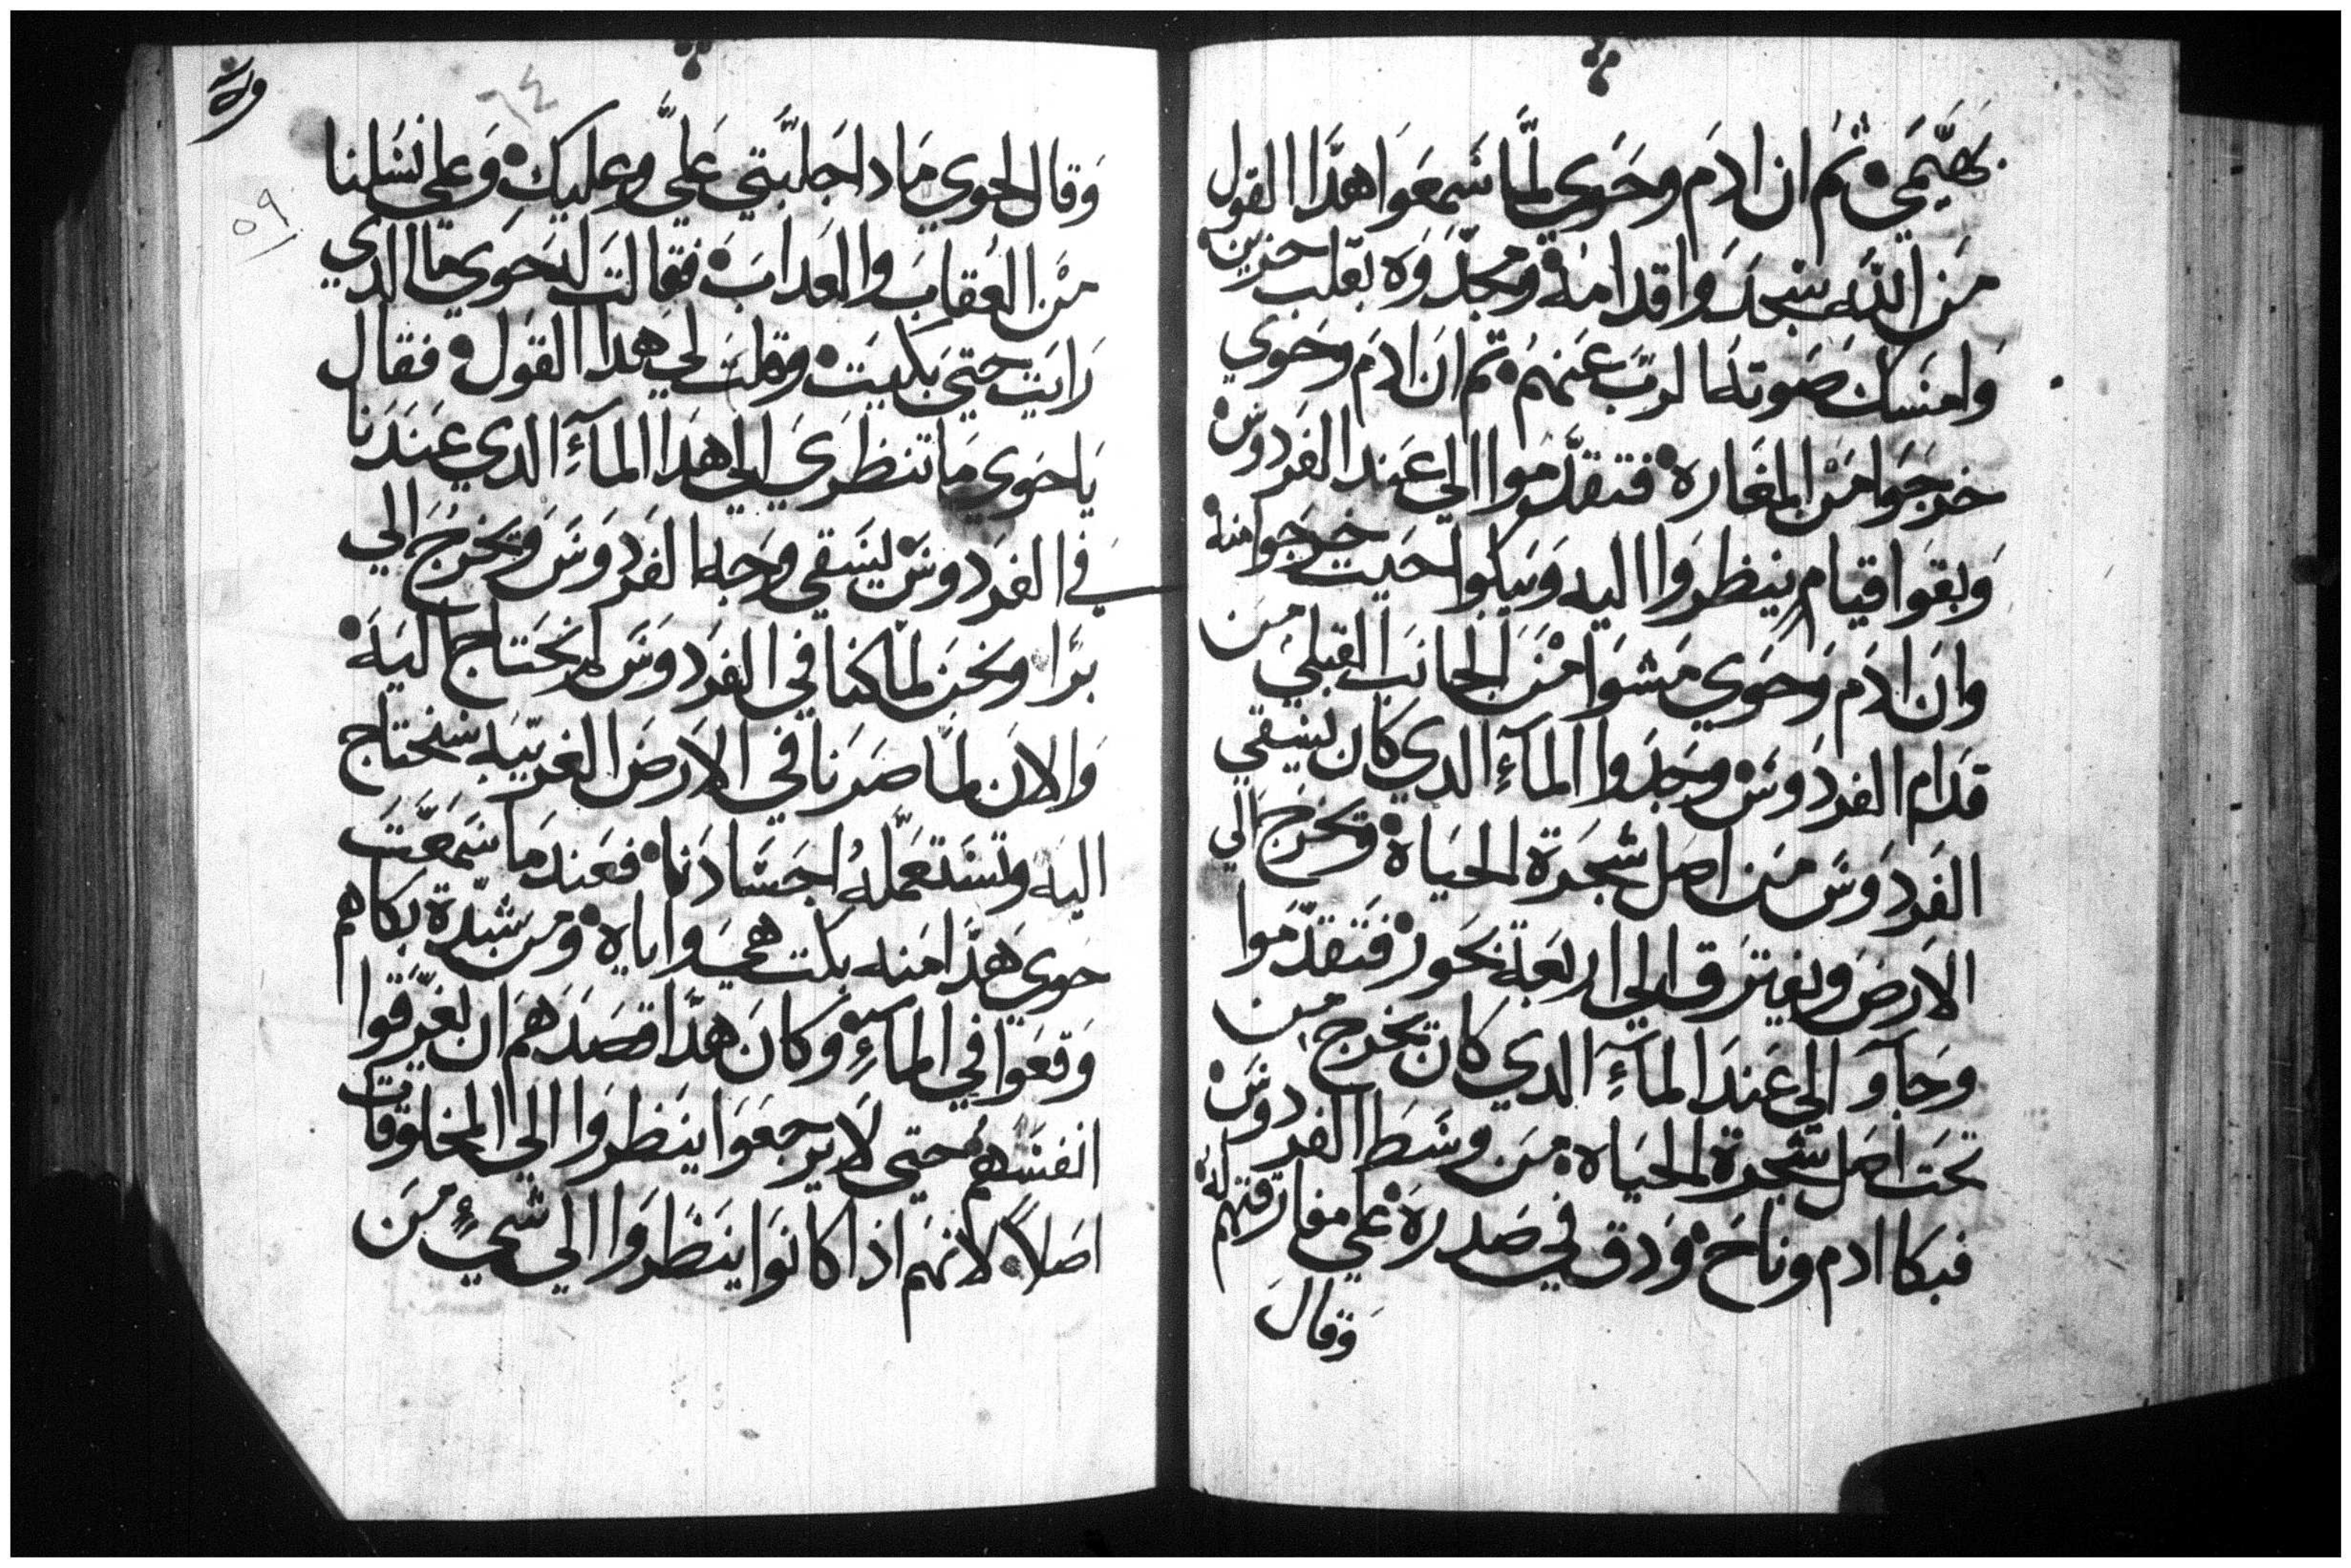 بهيمي ثم ان ادم وحوي لما سمعوا هدا القول
من الله سجدوا قدامه ومجدوه بقلب حزين
وامسك صوته الرب عنهم ثم ان ادم وحوي
خرجوا من المغاره فتقدموا الي عند الفردوس
وبقوا قيام ينظروا اليه ويبكوا حيت خرجوا منه
وان ادم وحوي مشوا من الجانب القبلي من
قدام الفردوس وجدوا المآء الدي كان يسقي
الفردوس من اصل شجرة الحياة ويخرج الي
الارض ويفترق الي اربعة بحور فتقدموا
وجآو الي عند المآء الدي كان يخرج من
تحت اصل شجرة الحياه من وسط الفردوس
فبكا ادم وناح ودق في صدره علي مفارقتهم له
وقال
ورقه
٦٤
٥٩
وقال لحوي مادا جلبتي علي وعليك وعلي نسلنا
من العقاب والعداب فقالت له حوي ما الدي
رايت حتي بكيت وقلت لي هدا القول فقال
ياحوي ما تنظري الي هدا المآء الدي عندنا
في الفردوس ليسقي وجه الفردوس ويخرج الي
برا ونحن لما كنا في الفردوس لم نحتاج اليه
والان لما صرنا في الارض الغريبه سنحتاج
اليه وتستعمله اجسادنا فعند ما سمعت
حوي هدا منه بكت هي واياه ومن شدة بكاهم
وقعوا في المآء وكان هدا قصدهم ان يغرقوا
انفسهم حتي لا يرجعوا ينظروا الي المخلوقات
اصلاً لانهم اذا كانوا ينظروا الي شيء من